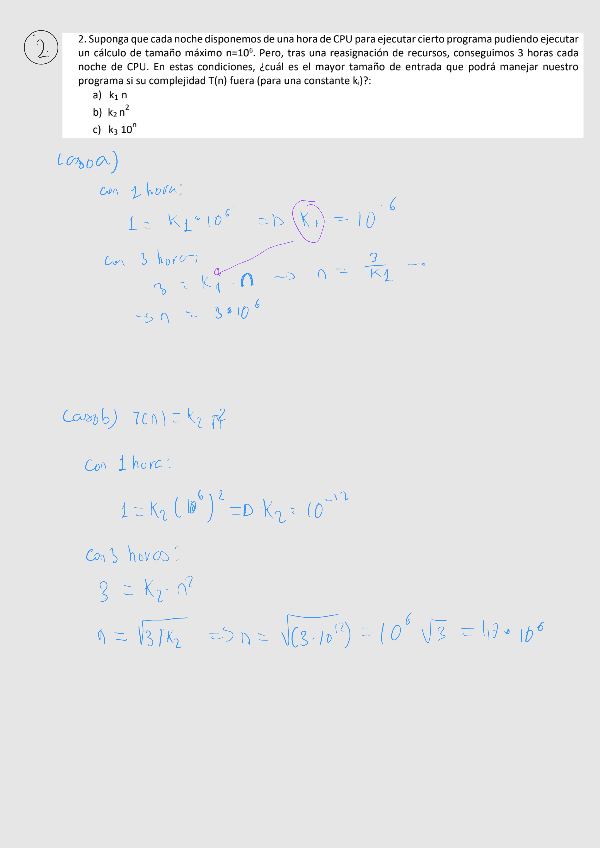 2
2. Suponga que cada noche disponemos de una hora de CPU para ejecutar cierto programa pudiendo ejecutar
un cálculo de tamaño máximo n=10⁶. Pero, tras una reasignación de recursos, conseguimos 3 horas cada
noche de CPU. En estas condiciones, ¿cuál es el mayor tamaño de entrada que podrá manejar nuestro
programa si su complejidad T(n) fuera (para una constante kᵢ)?:
a) k₁ n
b) k₂ n²
c) k₃ 10ⁿ
Caso a)
con 1 hora:
1 = K1 · 10⁶ => K1 = 10⁻⁶
con 3 horas:
3 = K1 · n -> n = 3/K1 -
-> n = 3 · 10⁶
Caso b) T(n) = K₂ n²
Con 1 hora:
1 = K₂ (10⁶)² => K₂ = 10⁻¹²
con 3 horas:
3 = K₂ · n²
n = √3/K₂ => n = √(3·10¹²) = 10⁶ √3 = 1,7 · 10⁶